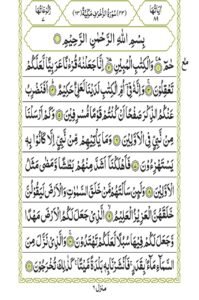 سورة الزخرف مكية
بسم الله الرحمن الرحيم
حم والكتب المبين انا جعلنه قرءنا عربيا لعلكم
تعقلون وانه في ام الكتب لدينا لعلي حكيم افنضرب
عنكم الذكر صفحا ان كنتم قوما مسرفين وكم ارسلنا
من نبي في الاولين وما ياتيهم من نبي الا كانوا به
يستهزءون فاهلكنا اشد منهم بطشا ومضى مثل
الاولين ولئن سالتهم من خلق السموت والارض ليقولن
خلقهن العزيز العليم الذي جعل لكم الارض مهدا
وجعل لكم فيها سبلا لعلكم تهتدون والذي نزل من
السماء ماء بقدر فانشرنا به بلدة ميتا كذلك تخرجون